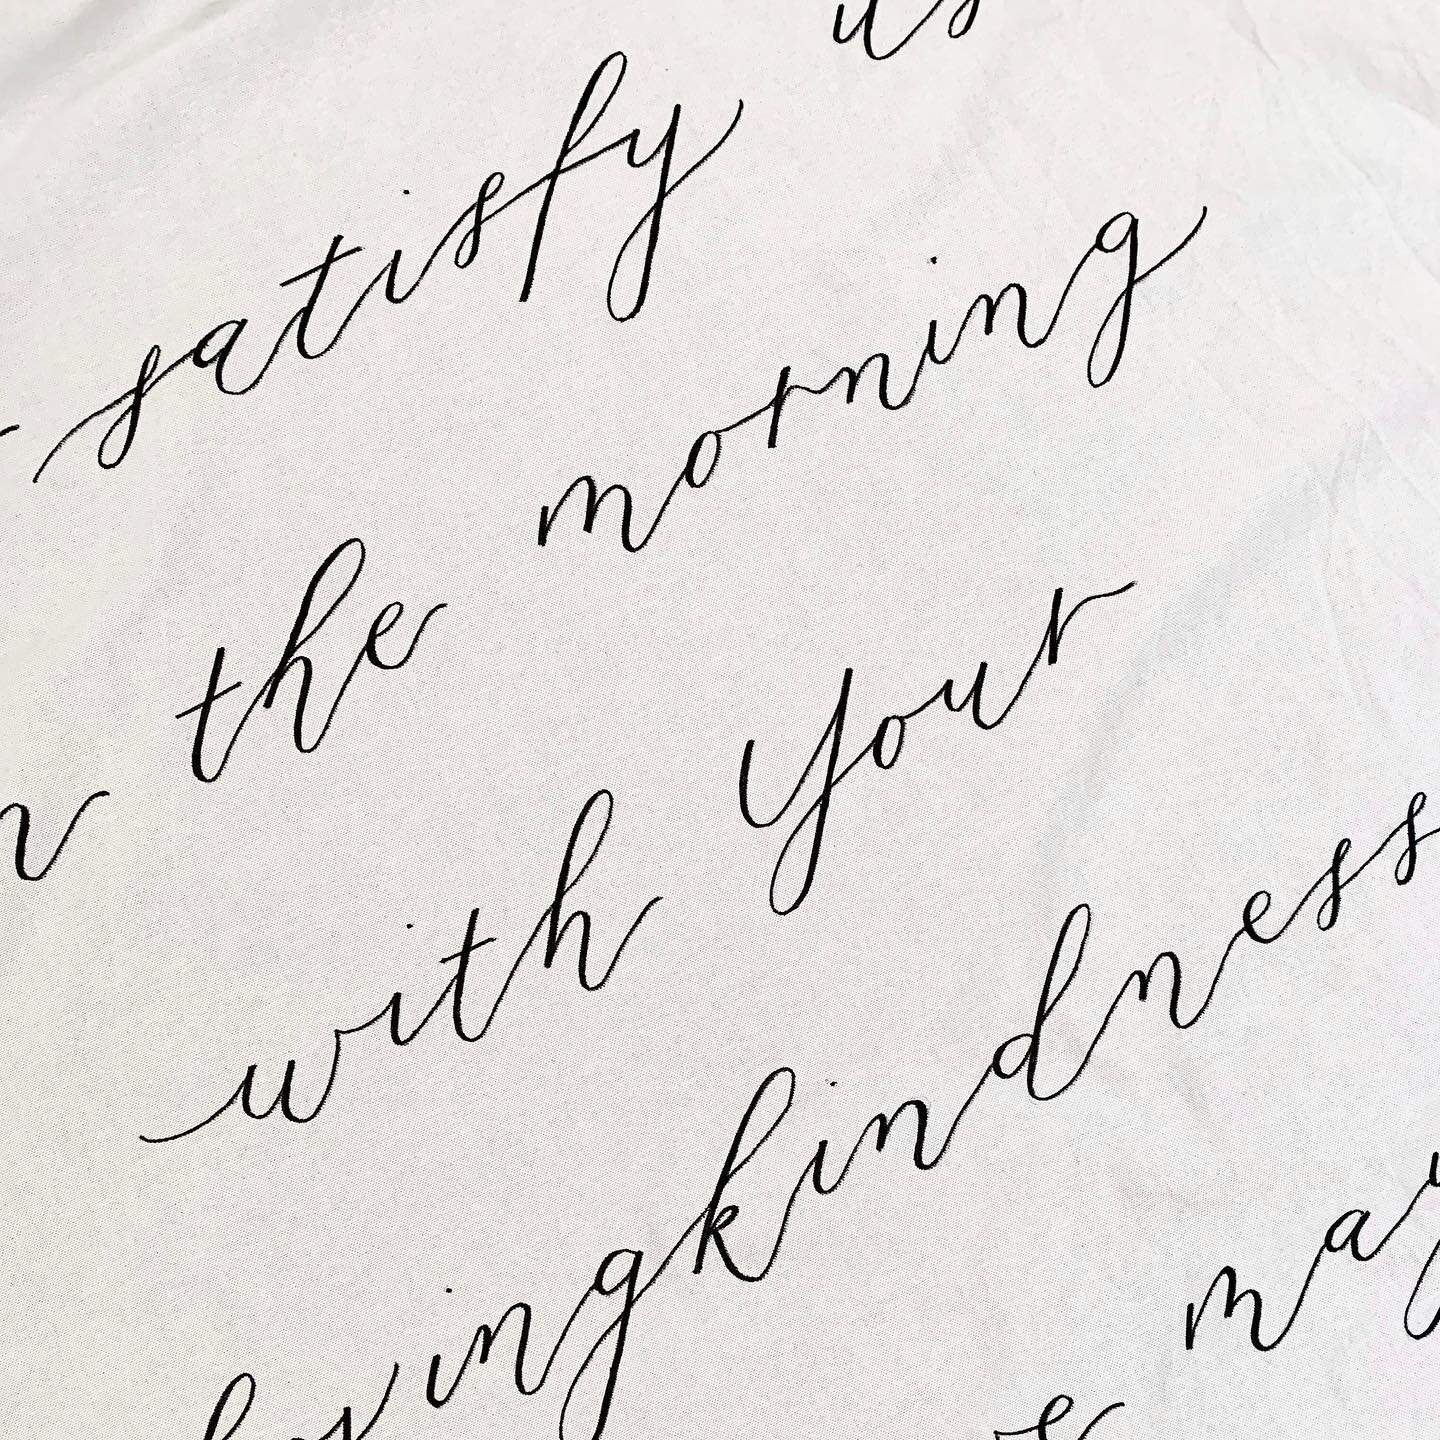 satisfy us
in the morning
with your
lovingkindness
may